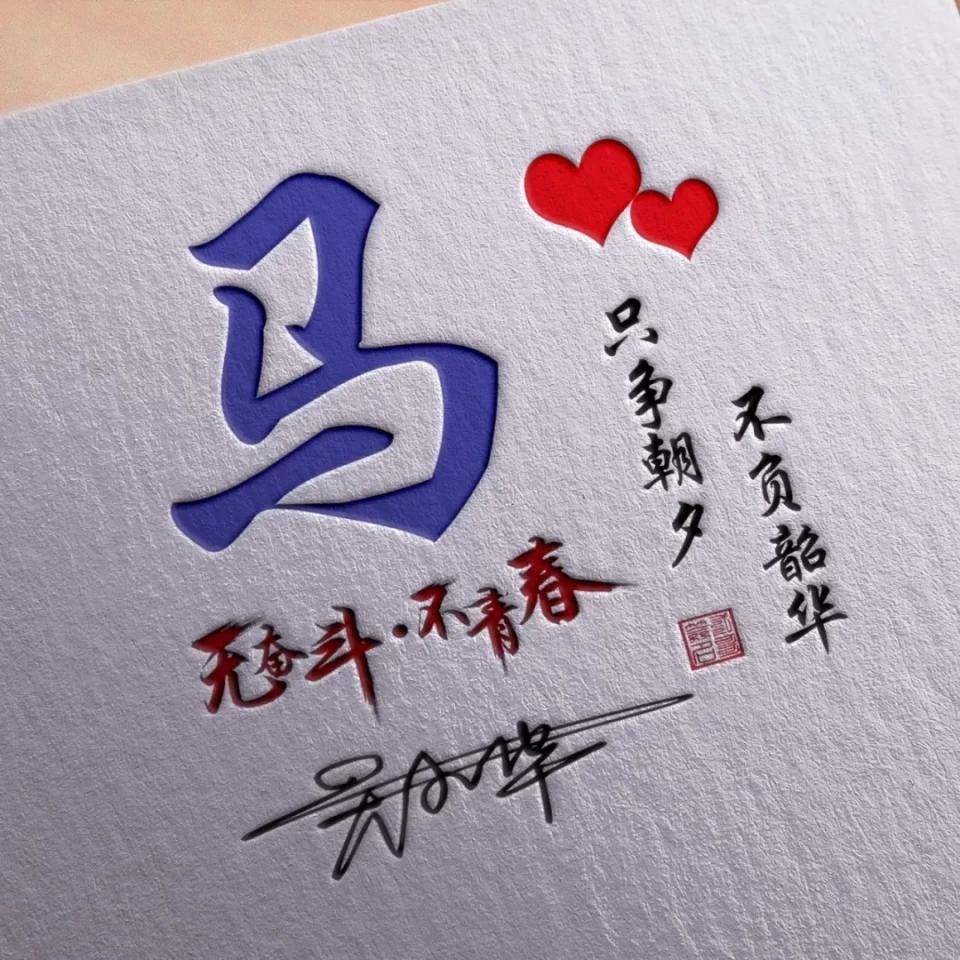 马
只争朝夕
不负韶华
无奋斗·不青春